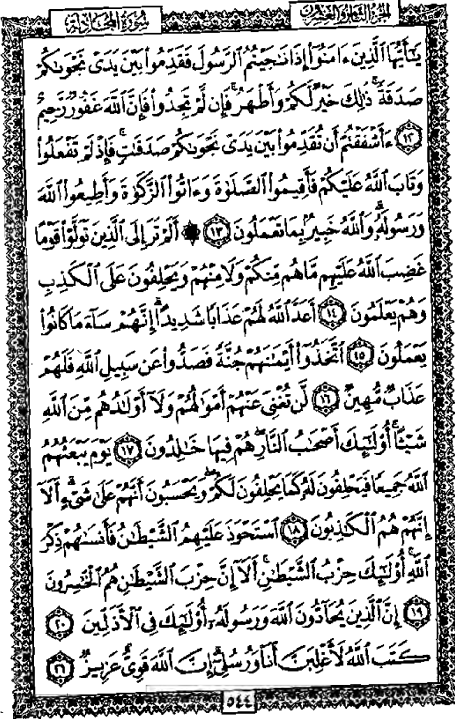 الجزء الثامن والعشرون
سُورَةُ المُجَادلة
يَٰٓأَيُّهَا ٱلَّذِينَ ءَامَنُوٓا۟ إِذَا نَٰجَيْتُمُ ٱلرَّسُولَ فَقَدِّمُوا۟ بَيْنَ يَدَىْ نَجْوَىٰكُمْ
صَدَقَةً ۚ ذَٰلِكَ خَيْرٌ لَّكُمْ وَأَطْهَرُ ۚ فَإِن لَّمْ تَجِدُوا۟ فَإِنَّ ٱللَّهَ غَفُورٌ رَّحِيمٌ
١٢ ءَأَشْفَقْتُمْ أَن تُقَدِّمُوا۟ بَيْنَ يَدَىْ نَجْوَىٰكُمْ صَدَقَٰتٍ ۚ فَإِذْ لَمْ تَفْعَلُوا۟
وَتَابَ ٱللَّهُ عَلَيْكُمْ فَأَقِيمُوا۟ ٱلصَّلَوٰةَ وَءَاتُوا۟ ٱلزَّكَوٰةَ وَأَطِيعُوا۟ ٱللَّهَ
وَرَسُولَهُۥ ۚ وَٱللَّهُ خَبِيرٌۢ بِمَا تَعْمَلُونَ ١٣ ۞ أَلَمْ تَرَ إِلَى ٱلَّذِينَ تَوَلَّوْا۟ قَوْمًا
غَضِبَ ٱللَّهُ عَلَيْهِم مَّا هُم مِّنكُمْ وَلَا مِنْهُمْ وَيَحْلِفُونَ عَلَى ٱلْكَذِبِ
وَهُمْ يَعْلَمُونَ ١٤ أَعَدَّ ٱللَّهُ لَهُمْ عَذَابًا شَدِيدًا ۖ إِنَّهُمْ سَآءَ مَا كَانُوا۟
يَعْمَلُونَ ١٥ ٱتَّخَذُوٓا۟ أَيْمَٰنَهُمْ جُنَّةً فَصَدُّوا۟ عَن سَبِيلِ ٱللَّهِ فَلَهُمْ
عَذَابٌ مُّهِينٌ ١٦ لَّن تُغْنِىَ عَنْهُمْ أَمْوَٰلُهُمْ وَلَآ أَوْلَٰدُهُم مِّنَ ٱللَّهِ
شَيْـًٔا ۚ أُو۟لَٰٓئِكَ أَصْحَٰبُ ٱلنَّارِ ۖ هُمْ فِيهَا خَٰلِدُونَ ١٧ يَوْمَ يَبْعَثُهُمُ
ٱللَّهُ جَمِيعًا فَيَحْلِفُونَ لَهُۥ كَمَا يَحْلِفُونَ لَكُمْ ۖ وَيَحْسَبُونَ أَنَّهُمْ عَلَىٰ شَىْءٍ ۚ أَلَآ
إِنَّهُمْ هُمُ ٱلْكَٰذِبُونَ ١٨ ٱسْتَحْوَذَ عَلَيْهِمُ ٱلشَّيْطَٰنُ فَأَنسَىٰهُمْ ذِكْرَ
ٱللَّهِ ۚ أُو۟لَٰٓئِكَ حِزْبُ ٱلشَّيْطَٰنِ ۚ أَلَآ إِنَّ حِزْبَ ٱلشَّيْطَٰنِ هُمُ ٱلْخَٰسِرُونَ
١٩ إِنَّ ٱلَّذِينَ يُحَآدُّونَ ٱللَّهَ وَرَسُولَهُۥٓ أُو۟لَٰٓئِكَ فِى ٱلْأَذَلِّينَ ٢٠
كَتَبَ ٱللَّهُ لَأَغْلِبَنَّ أَنَا۠ وَرُسُلِىٓ ۚ إِنَّ ٱللَّهَ قَوِىٌّ عَزِيزٌ ٢١
٥٤٤